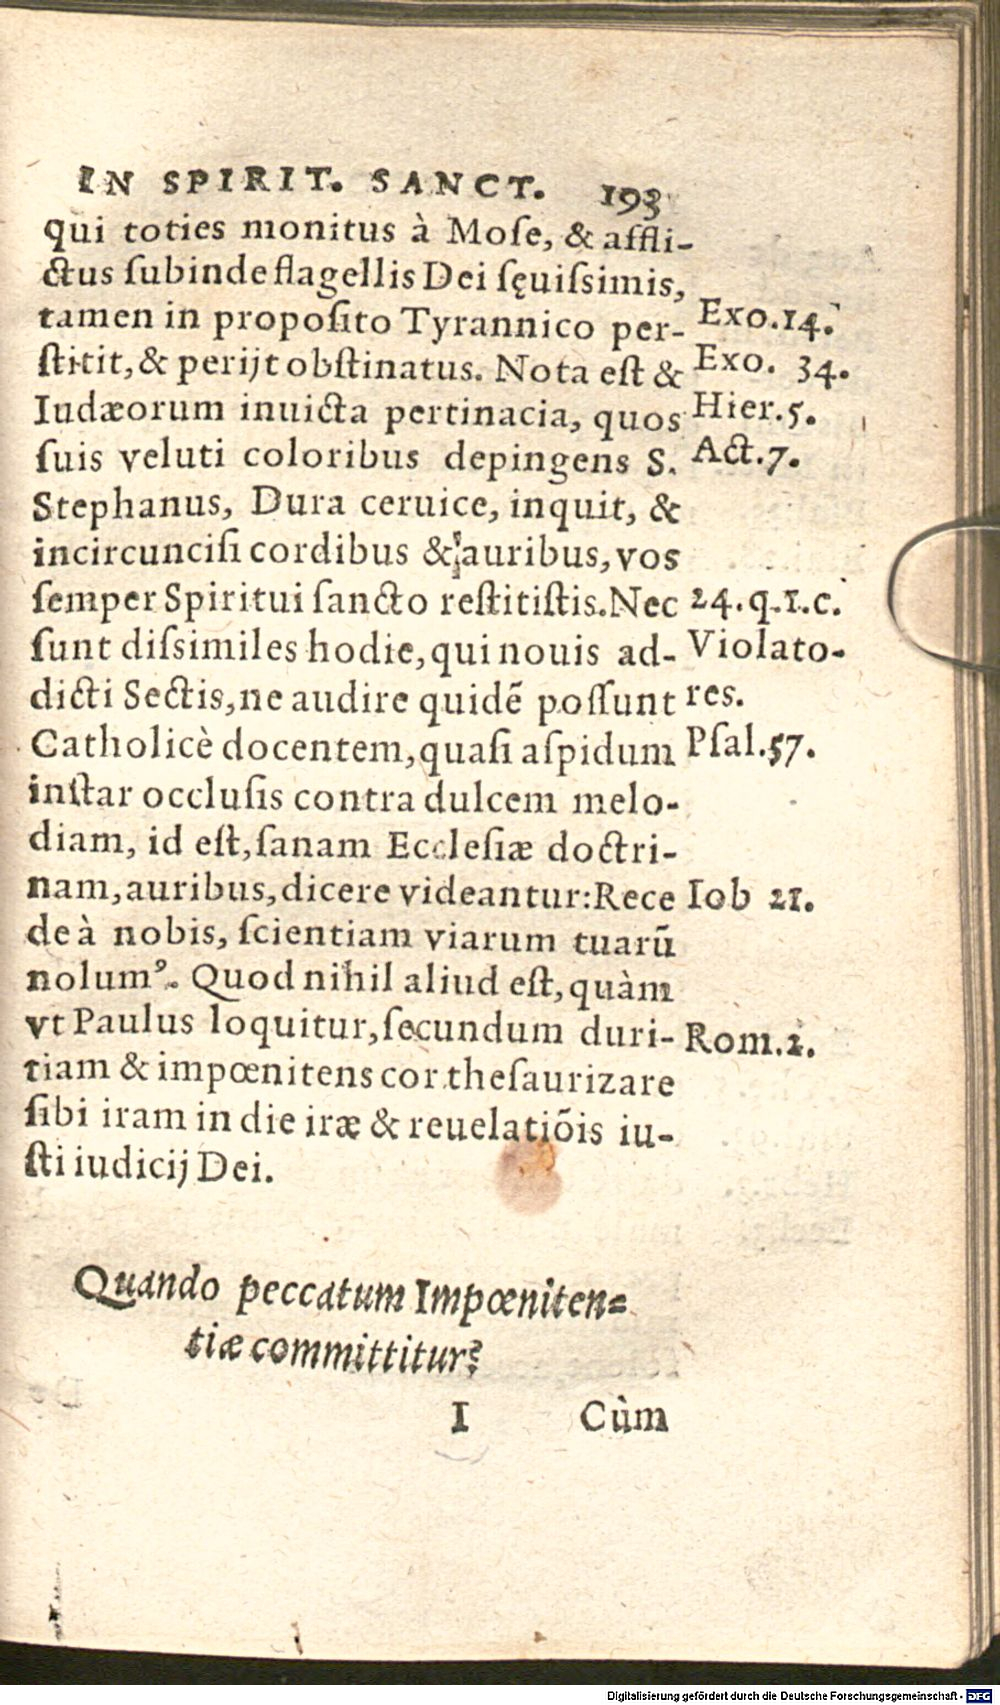 IN SPIRIT. SANCT. 193
qui toties monitus à Moſe, & affli-
ctus ſubinde flagellis Dei ſęuiſsimis,
tamen in propoſito Tyrannico per-
ſtitit, & perijt obſtinatus. Nota eſt &
Iudæorum inuicta pertinacia, quos
ſuis veluti coloribus depingens S.
Stephanus, Dura ceruice, inquit, &
incircunciſi cordibus & auribus, vos
ſemper Spiritui ſancto reſtitiſtis. Nec
ſunt diſsimiles hodie, qui nouis ad-
dicti Sectis, ne audire quidē poſſunt
Catholicè docentem, quaſi aſpidum
inſtar occluſis contra dulcem melo-
diam, id eſt, ſanam Eccleſiæ doctri-
nam, auribus, dicere videantur: Rece
de à nobis, ſcientiam viarum tuarū
nolumꝰ. Quod nihil aliud eſt, quàm
vt Paulus loquitur, ſecundum duri-
tiam & impœnitens cor theſaurizare
ſibi iram in die iræ & reuelatiōis iu-
ſti iudicij Dei.
Exo.14.
Exo. 34.
Hier.5.
Act.7.
24.q.1.c.
Violato-
res.
Pſal.57.
Iob 21.
Rom.2.
Quando peccatum Impœniten-
tiæ committitur?
I Cùm
Digitalisierung gefördert durch die Deutsche Forschungsgemeinschaft - DFG